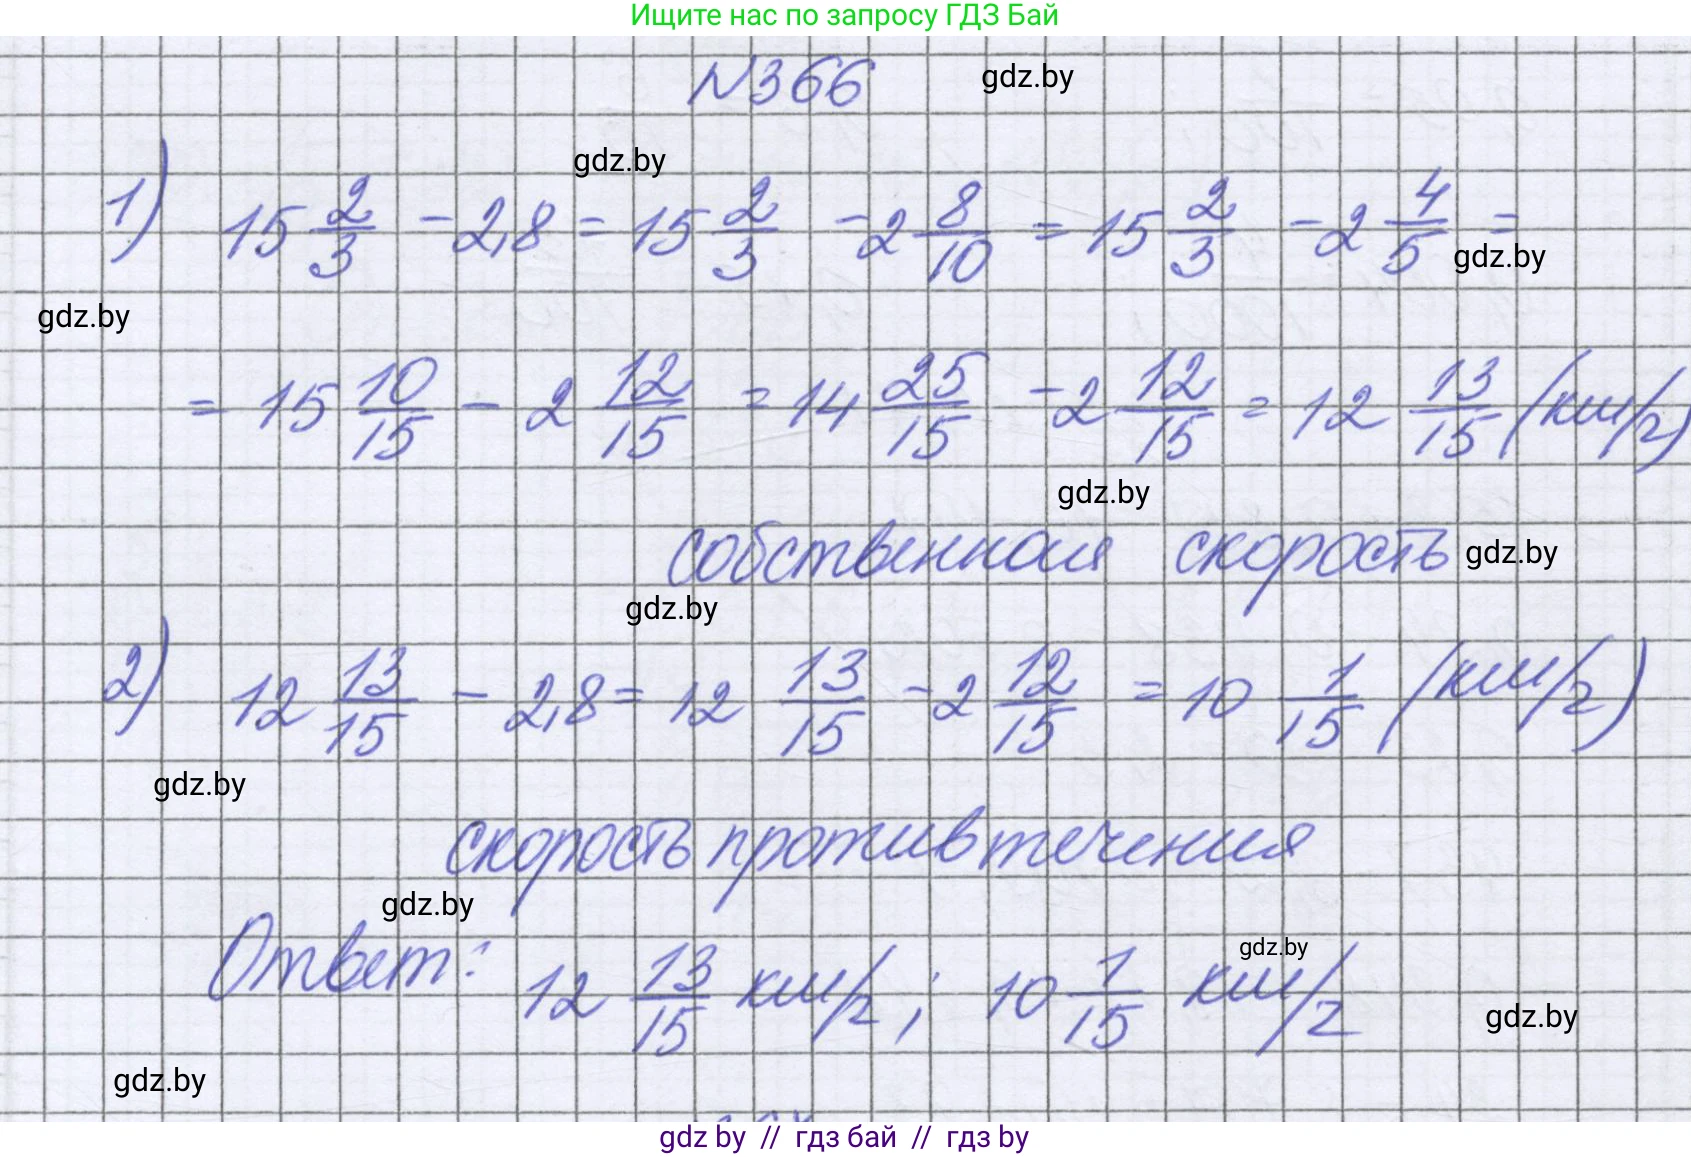 Ищите нас по запросу ГДЗ Бай
№366
gdz.by
gdz.by
1) 15 2/3 - 2,8 = 15 2/3 - 2 8/10 = 15 2/3 - 2 4/5 =
gdz.by
gdz.by
= 15 10/15 - 2 12/15 = 14 25/15 - 2 12/15 = 12 13/15 (км/ч)
gdz.by
собственная скорость
gdz.by
gdz.by
2) 12 13/15 - 2,8 = 12 13/15 - 2 12/15 = 10 1/15 (км/ч)
gdz.by
скорость против течения
gdz.by
Ответ: 12 13/15 км/ч; 10 1/15 км/ч
gdz.by
gdz.by
gdz.by
gdz by // гдз бай // гдз by